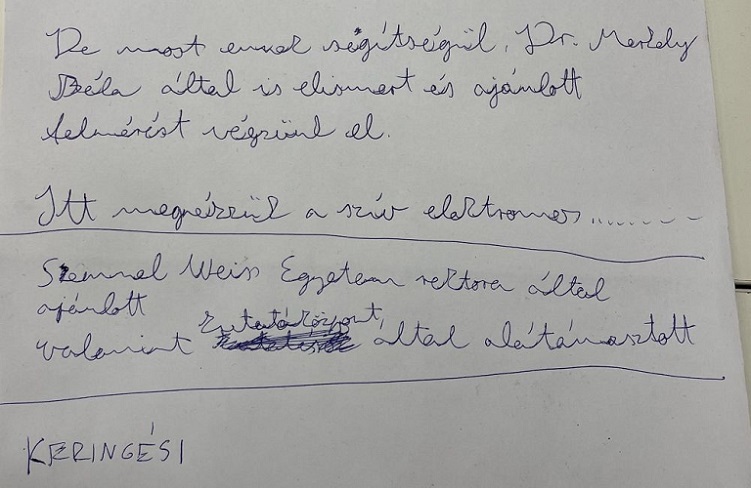 De most ennek segítségével, Dr. Merkely
Béla által is elismert és ajánlott
felmérést végzünk el.
Itt megnézzük a szív elektromos .......
Szemmel Weiss Egyetem rektora által
ajánlott
valamint Kutatóközpont által alátámasztott
KERINGÉSI